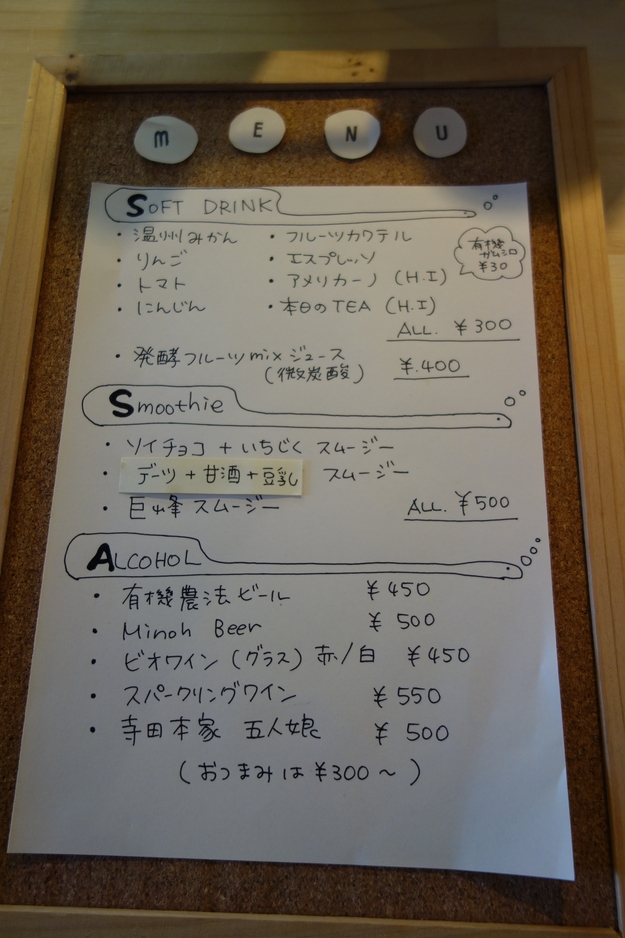 MENU
SOFT DRINK
・温州みかん ・フルーツカクテル
・りんご ・エスプレッソ
・トマト ・アメリカーノ (H.I)
・にんじん ・本日のTEA (H.I)
有機
ガムシロ
¥30
ALL. ¥300
・発酵フルーツmixジュース
(微炭酸) ¥.400
Smoothie
・ソイチョコ+いちじく スムージー
・デーツ+甘酒+豆乳 スムージー
・巨峰スムージー ALL. ¥500
ALCOHOL
・有機農法ビール ¥450
・Minoh Beer ¥500
・ビオワイン(グラス)赤/白 ¥450
・スパークリングワイン ¥550
・寺田本家 五人娘 ¥500
(おつまみは¥300~)